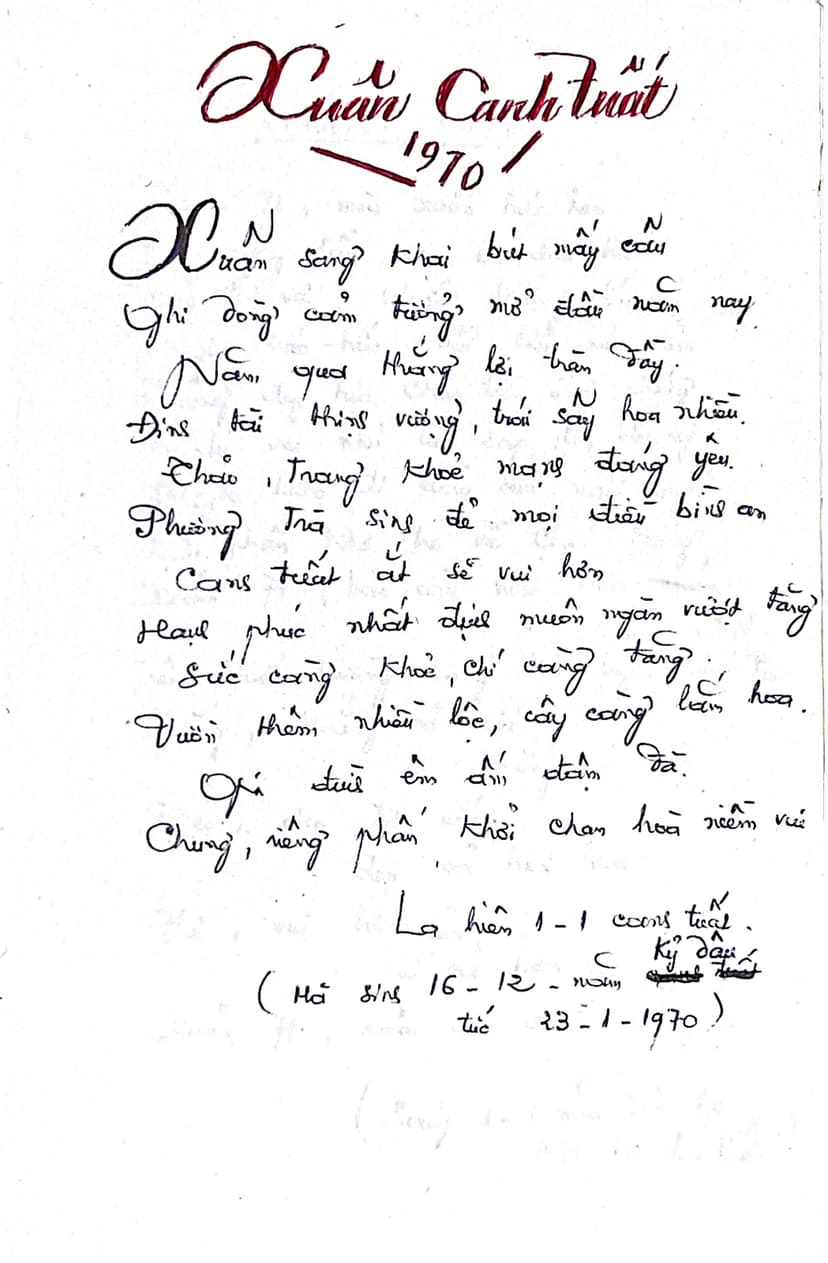 Xuân Canh Tuất
1970
Xuân sang khai bút mấy câu
Ghi dòng cảm tưởng mở đầu năm nay
Năm qua thắng lợi tràn đầy.
Đinh tài thịnh vượng, trái sây hoa nhiều.
Thảo, Trang khoẻ mạnh đáng yêu.
Phương Trà sinh đẻ mọi điều bình an
Canh tuất ắt sẽ vui hơn
Hạnh phúc nhất định muôn ngàn vượt tăng
Sức càng khoẻ, chí càng tăng.
Vườn thêm nhiều lộc, cây càng lắm hoa.
Gia đình êm ấm đậm đà.
Chung, riêng phấn khởi chan hoà niềm vui
La hiên 1-1 canh tuất.
Kỷ dậu
(Hà sinh 16-12-năm
tức 23-1-1970)